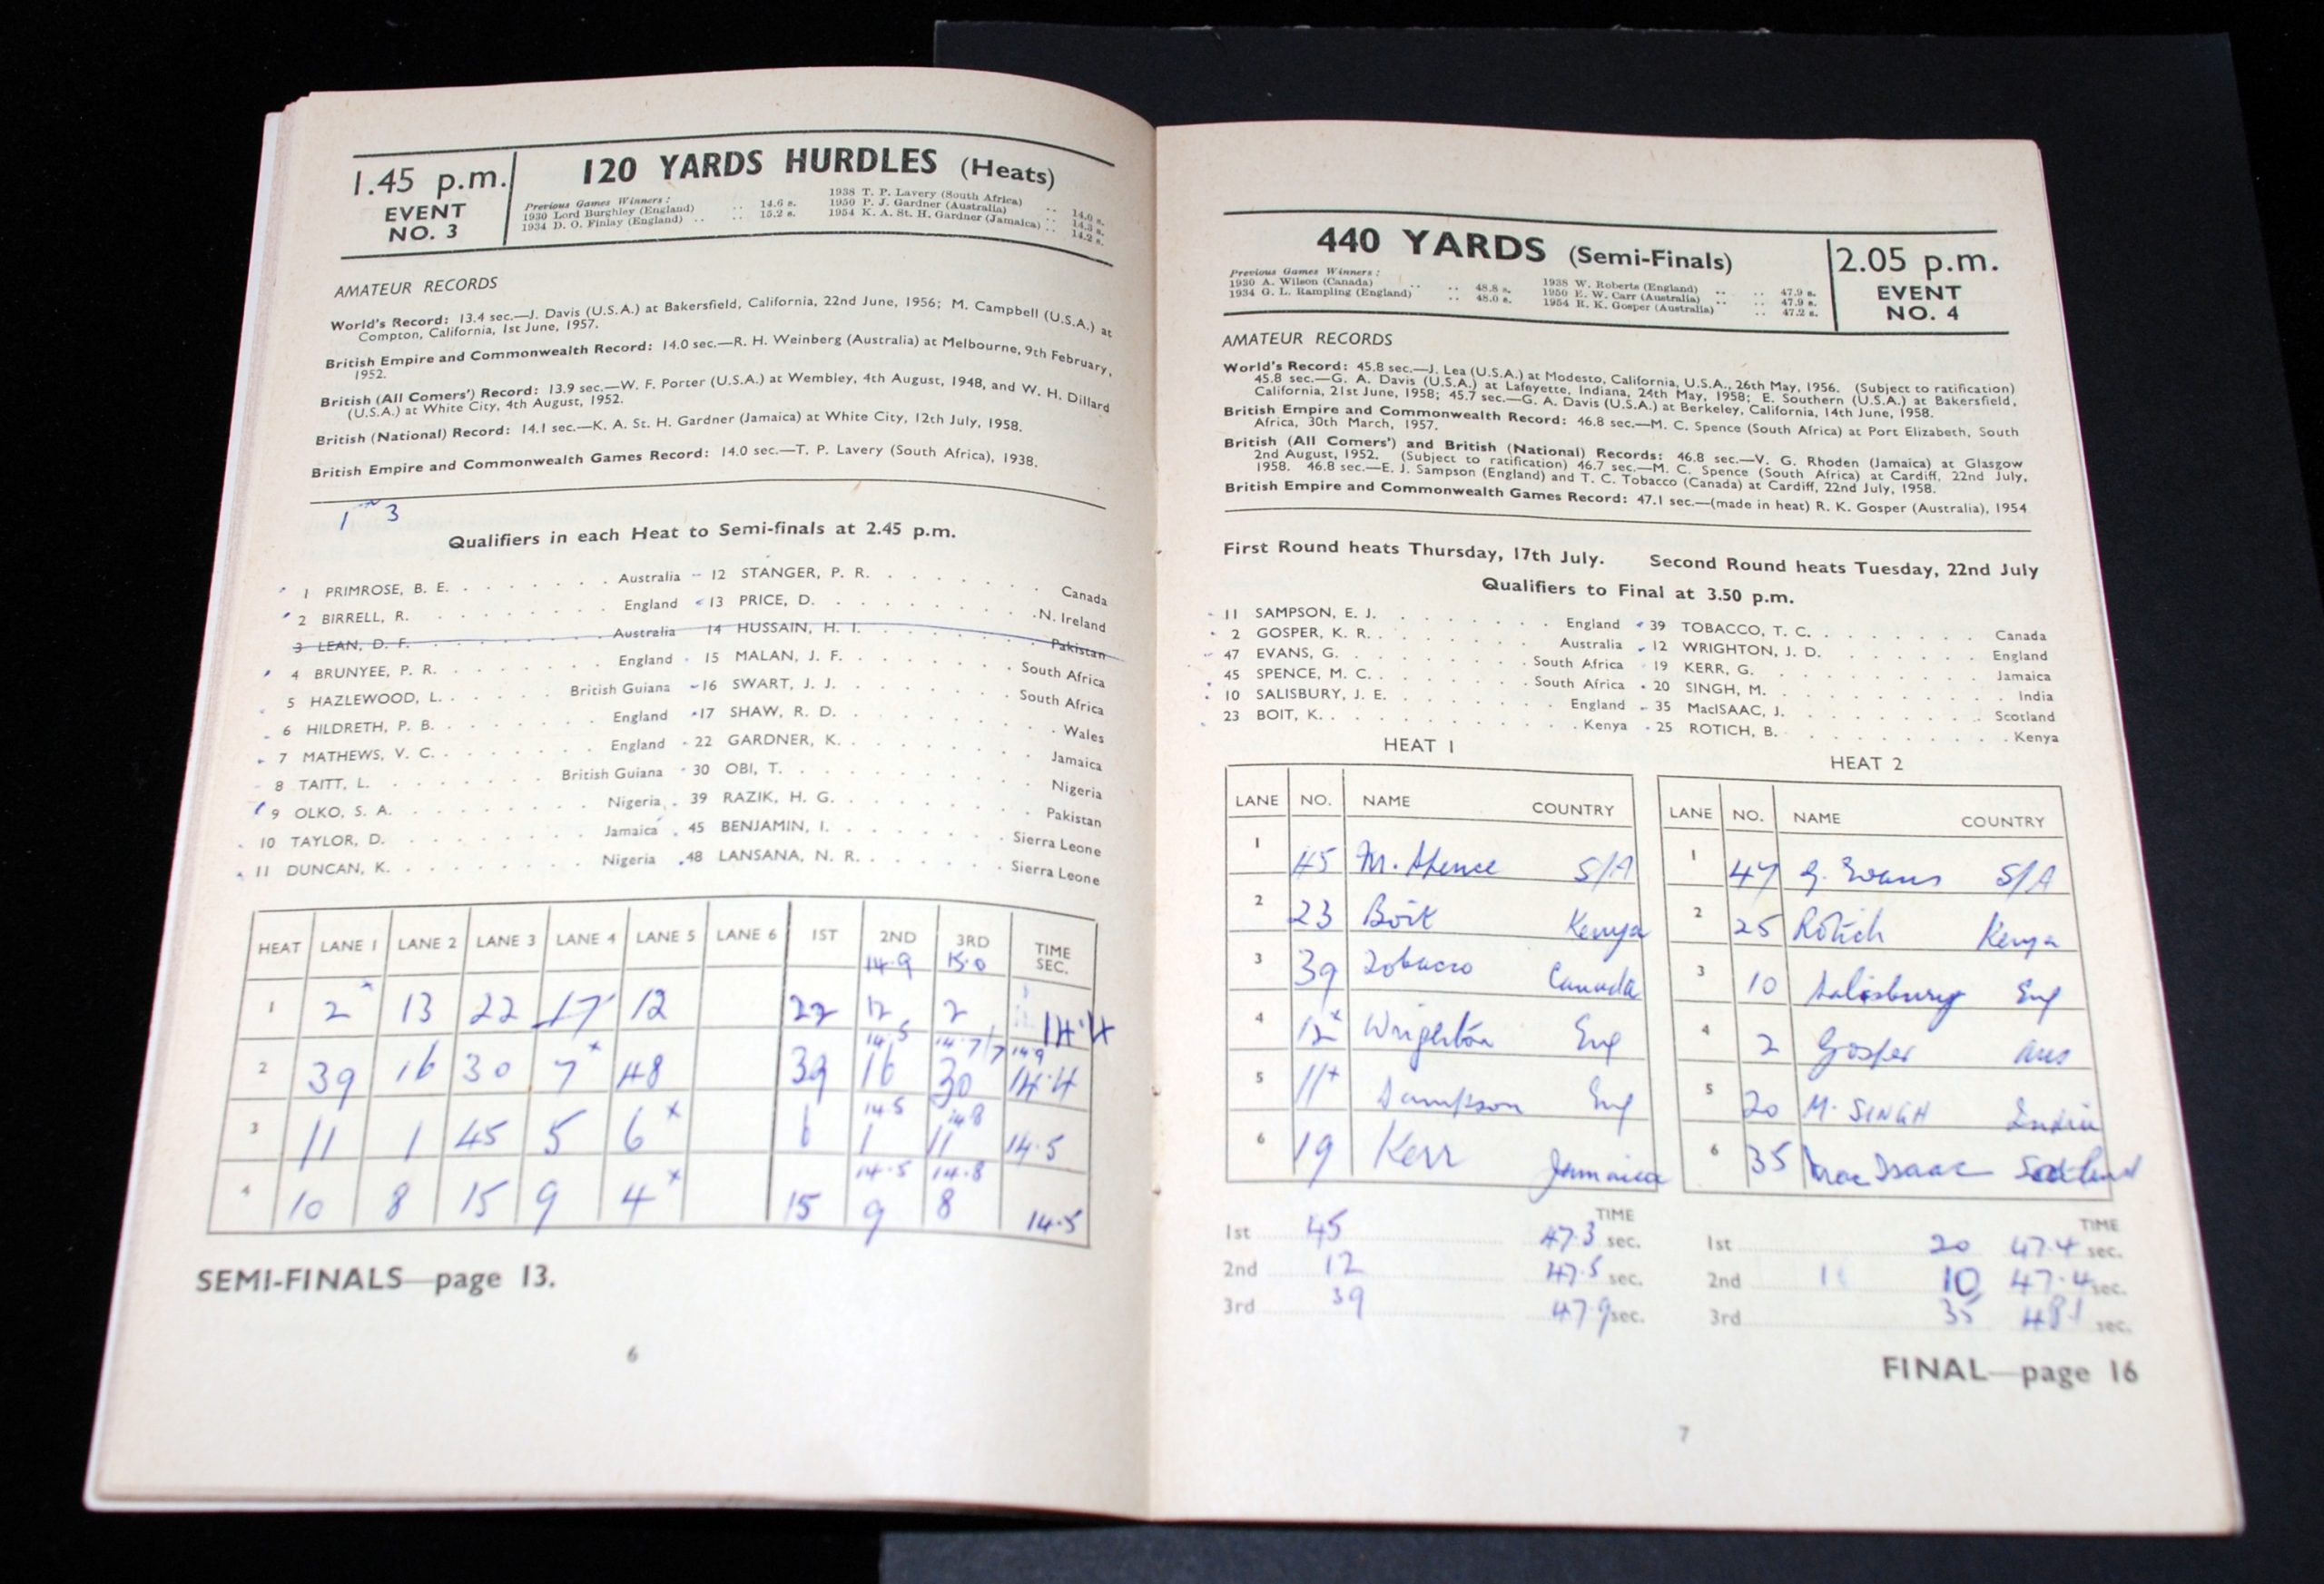 1.45 p.m.
EVENT
NO. 3
120 YARDS HURDLES (Heats)
Previous Games Winners:
1930 Lord Burghley (England) .. 14.6 s.
1934 D. O. Finlay (England) .. .. 15.2 s.
1938 T. P. Lavery (South Africa) .. 14.0 s.
1950 P. J. Gardner (Australia) .. 14.3 s.
1954 K. A. St. H. Gardner (Jamaica) .. 14.2 s.
AMATEUR RECORDS
World's Record: 13.4 sec.—J. Davis (U.S.A.) at Bakersfield, California, 22nd June, 1956; M. Campbell (U.S.A.) at
Compton, California, 1st June, 1957.
British Empire and Commonwealth Record: 14.0 sec.—R. H. Weinberg (Australia) at Melbourne, 9th February,
1952.
British (All Comers') Record: 13.9 sec.—W. F. Porter (U.S.A.) at Wembley, 4th August, 1948, and W. H. Dillard
(U.S.A.) at White City, 4th August, 1952.
British (National) Record: 14.1 sec.—K. A. St. H. Gardner (Jamaica) at White City, 12th July, 1958.
British Empire and Commonwealth Games Record: 14.0 sec.—T. P. Lavery (South Africa), 1938.
1 3
Qualifiers in each Heat to Semi-finals at 2.45 p.m.
1 PRIMROSE, B. E. Australia 12 STANGER, P. R. Canada
2 BIRRELL, R. England 13 PRICE, D. N. Ireland
3 LEAN, D. F. Australia 14 HUSSAIN, H. I. Pakistan
4 BRUNYEE, P. R. England 15 MALAN, J. F. South Africa
5 HAZLEWOOD, L. British Guiana 16 SWART, J. J. South Africa
6 HILDRETH, P. B. England 17 SHAW, R. D. Wales
7 MATHEWS, V. C. England 22 GARDNER, K. Jamaica
8 TAITT, L. British Guiana 30 OBI, T. Nigeria
9 OLKO, S. A. Nigeria 39 RAZIK, H. G. Pakistan
10 TAYLOR, D. Jamaica 45 BENJAMIN, I. Sierra Leone
11 DUNCAN, K. Nigeria 48 LANSANA, N. R. Sierra Leone
HEAT LANE 1 LANE 2 LANE 3 LANE 4 LANE 5 LANE 6 1ST 2ND 3RD TIME SEC.
14.9 15.0
1 2x 13 22 17 12 22 12 2 14.4
14.5 14.7/7 14.9
2 39 16 30 7x 48 39 16 30 14.4
14.5 14.8
3 11 1 45 5 6x 6 1 11 14.5
14.5 14.8
4 10 8 15 9 4x 15 9 8 14.5
SEMI-FINALS—page 13.
6
440 YARDS (Semi-Finals)
Previous Games Winners:
1930 A. Wilson (Canada) .. .. 48.8 s.
1934 G. L. Rampling (England) .. 48.0 s.
1938 W. Roberts (England) .. .. 47.9 s.
1950 E. W. Carr (Australia) .. .. 47.9 s.
1954 R. K. Gosper (Australia) .. 47.2 s.
2.05 p.m.
EVENT
NO. 4
AMATEUR RECORDS
World's Record: 45.8 sec.—J. Lea (U.S.A.) at Modesto, California, U.S.A., 26th May, 1956. (Subject to ratification)
45.8 sec.—G. A. Davis (U.S.A.) at Lafayette, Indiana, 24th May, 1958; E. Southern (U.S.A.) at Bakersfield,
California, 21st June, 1958; 45.7 sec.—G. A. Davis (U.S.A.) at Berkeley, California, 14th June, 1958.
British Empire and Commonwealth Record: 46.8 sec.—M. C. Spence (South Africa) at Port Elizabeth, South
Africa, 30th March, 1957.
British (All Comers') and British (National) Records: 46.8 sec.—V. G. Rhoden (Jamaica) at Glasgow
2nd August, 1952. (Subject to ratification) 46.7 sec.—M. C. Spence (South Africa) at Cardiff, 22nd July,
1958. 46.8 sec.—E. J. Sampson (England) and T. C. Tobacco (Canada) at Cardiff, 22nd July, 1958.
British Empire and Commonwealth Games Record: 47.1 sec.—(made in heat) R. K. Gosper (Australia), 1954
First Round heats Thursday, 17th July. Second Round heats Tuesday, 22nd July
Qualifiers to Final at 3.50 p.m.
11 SAMPSON, E. J. England 39 TOBACCO, T. C. Canada
2 GOSPER, K. R. Australia 12 WRIGHTON, J. D. England
47 EVANS, G. South Africa 19 KERR, G. Jamaica
45 SPENCE, M. C. South Africa 20 SINGH, M. India
10 SALISBURY, J. E. England 35 MacISAAC, J. Scotland
23 BOIT, K. Kenya 25 ROTICH, B. Kenya
HEAT 1
LANE NO. NAME COUNTRY
1 45 M. Spence S/A
2 23 Boit Kenya
3 39 Tobacco Canada
4 12x Wrighton Eng
5 11+ Sampson Eng
6 19 Kerr Jamaica
TIME
1st 45 47.3 sec.
2nd 12 47.5 sec.
3rd 39 47.9 sec.
HEAT 2
LANE NO. NAME COUNTRY
1 47 G. Evans S/A
2 25 Rotich Kenya
3 10 Salisbury Eng
4 2 Gosper Aus
5 20 M. SINGH India
6 35 Mac Isaac Scotland
TIME
1st 20 47.4 sec.
2nd 10 47.4 sec.
3rd 35 48.1 sec.
FINAL—page 16
7